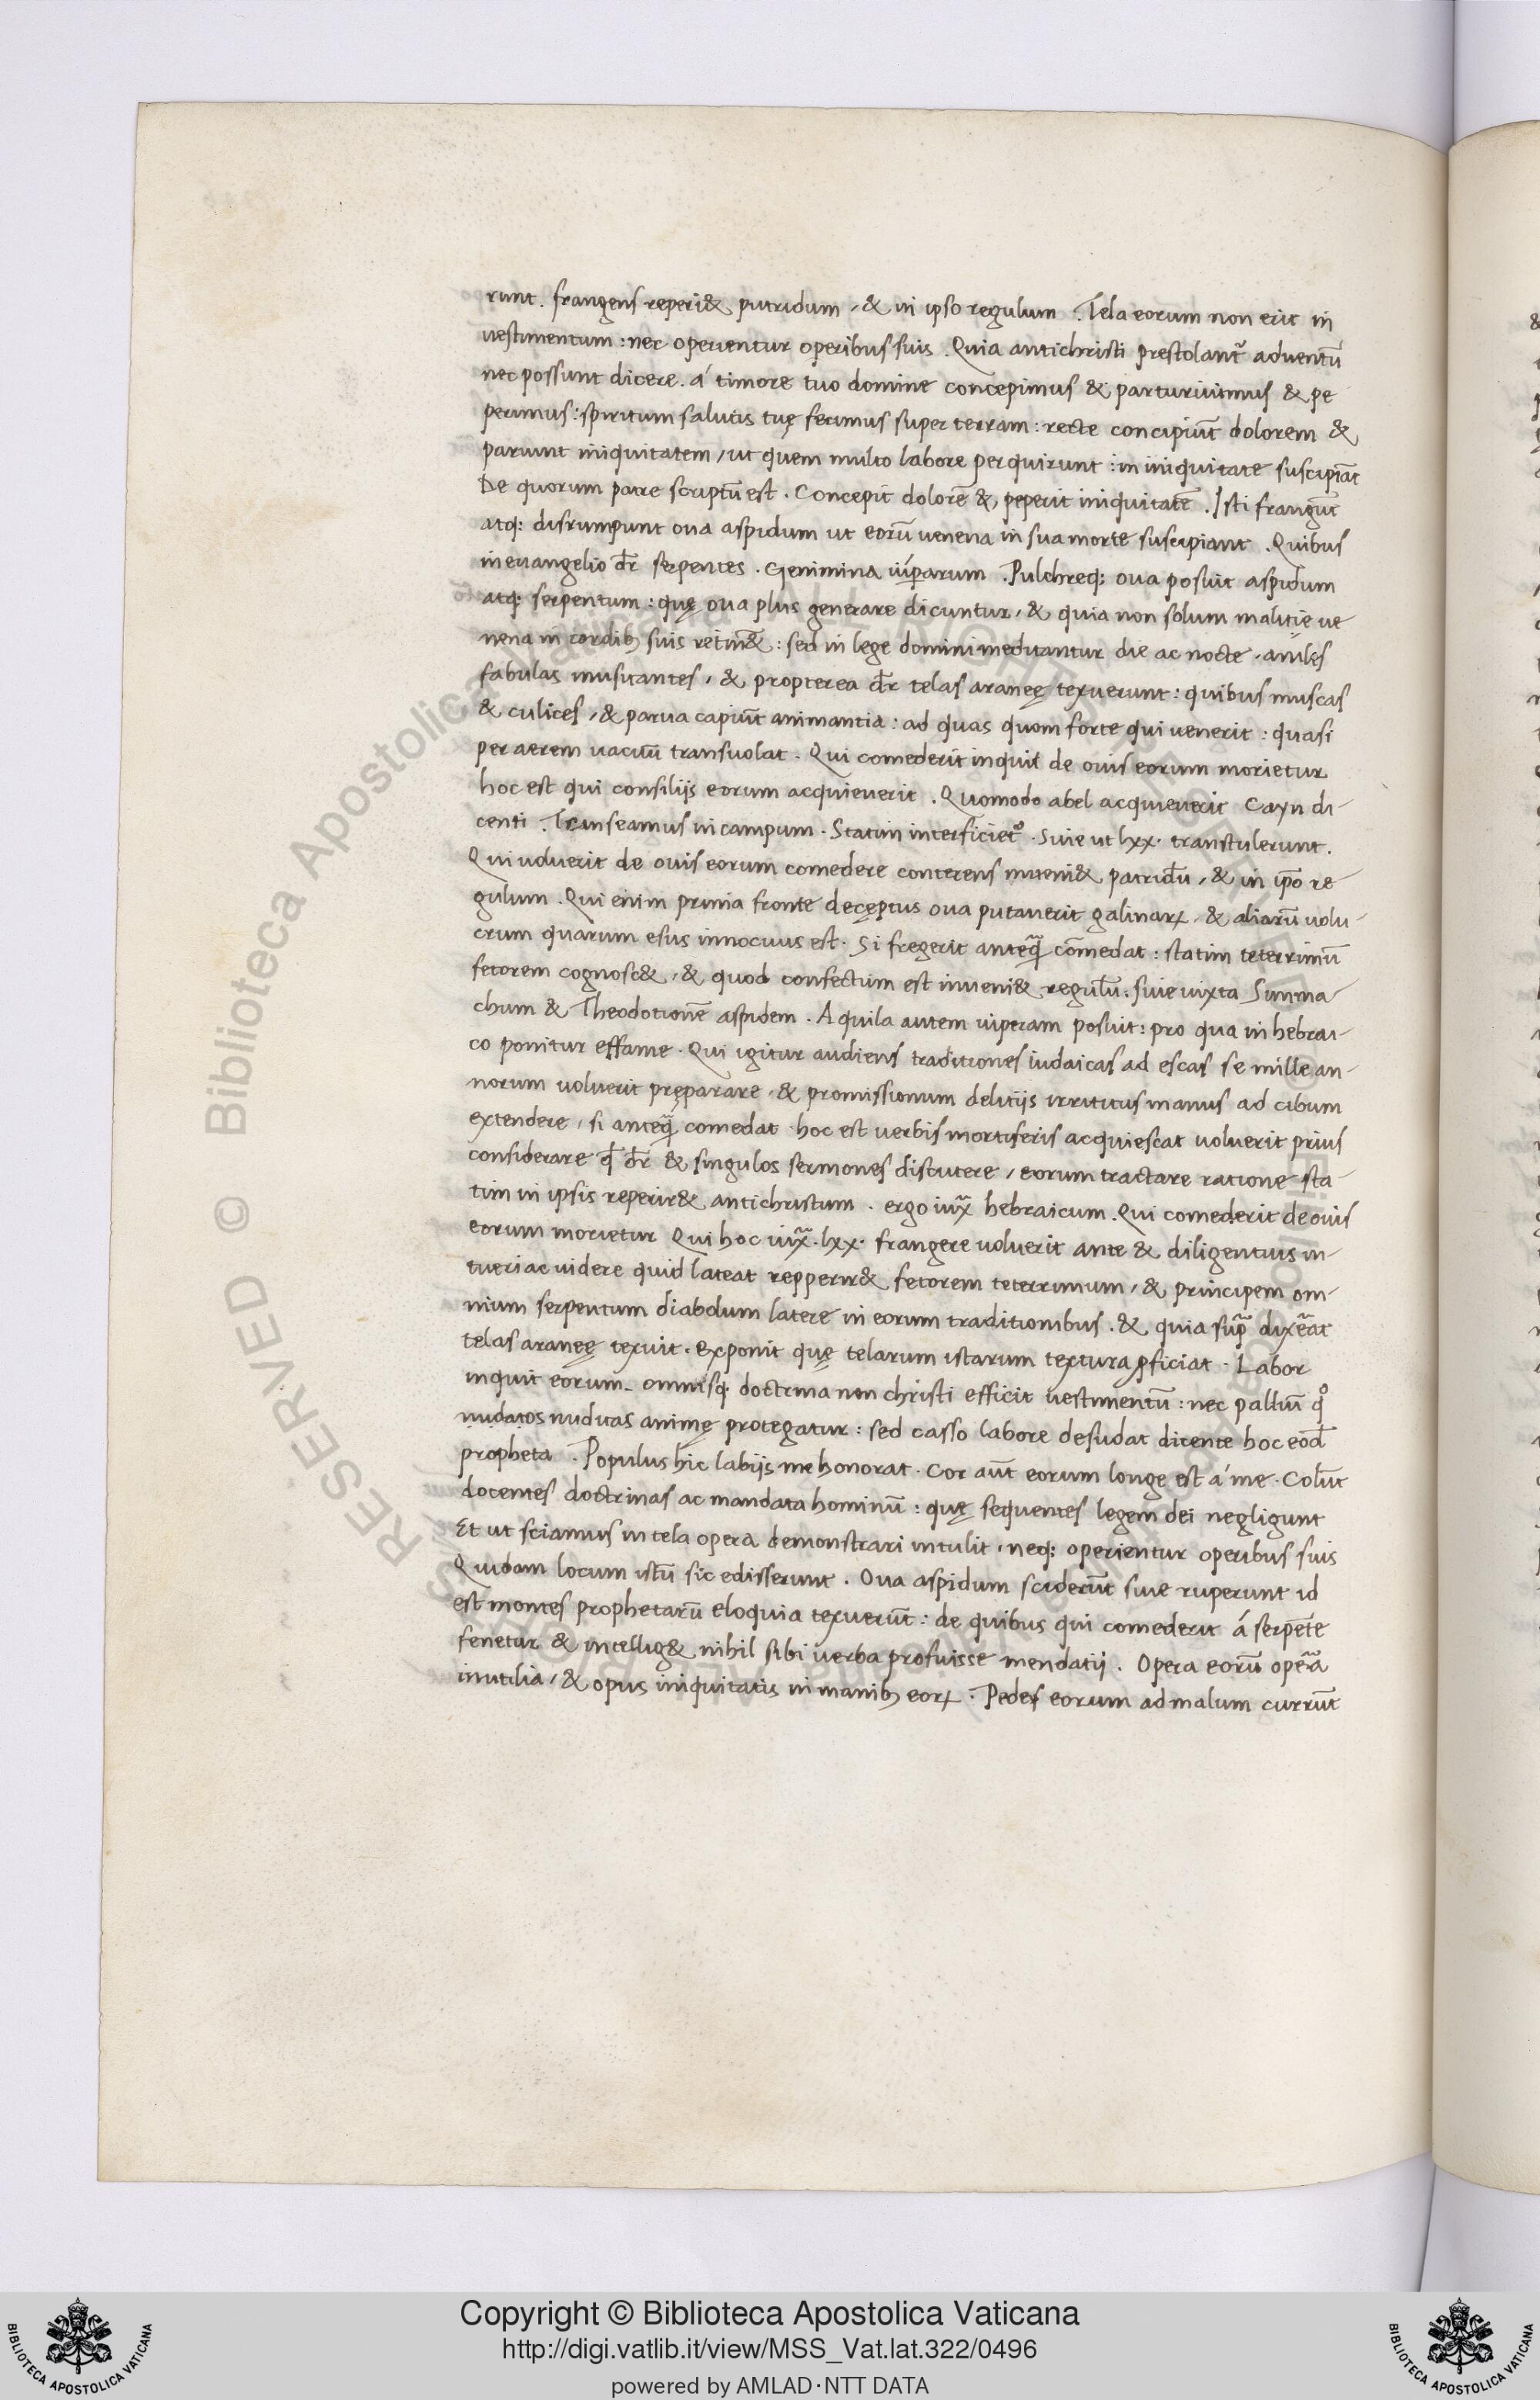 runt. frangens reperi& putridum, & in ipso regulum. Tela eorum non erit in
uestimentum: nec operientur operibus suis. Quia antichristi prestolant᷑ aduentū
nec possunt dicere. á timore tuo domine concepimus & parturiuimus & pe
perimus: spiritum salutis tuę fecimus super terram: recte concipiūt dolorem &
pariunt iniquitatem, ut quem multo labore perquirunt: in iniquitate suscipiāt
De quorum patre scriptū est. Concepit dolorē & peperit iniquitatē. Isti frangūt
atq: disrumpunt oua aspidum ut eorū uenena in sua morte suscipiant. Quibus
in euangelio dr̄ serpentes. Genimina uiperarum. Pulchreq; oua posuit aspidum
atq: serpentum: quę oua plus generare dicuntur, & quia non solum malitię ue
nena in cordib; suis retin&: sed in lege domini meditantur die ac nocte, anilęs
fabulas musitantes, & propterea dr̄ telas araneę texuerunt: quibus muscas
& culices, & parua capiūt animantia: ad quas quom forte qui uenerit: quasi
per aerem uacuū transuolat. Qui comederit inquit de ouis eorum morietur
hoc est qui consilijs eorum acquieuerit. Quomodo abel acquieuerit Cayn di-
centi. Transeamus in campum. Statim interficiet᷑. Siue ut lxx. transtulerunt.
Qui uoluerit de ouis eorum comedere conterens inueni& patridū, & in ip̄o re-
gulum. Qui enim prima fronte decęptus oua putauerit galinarꝝ, & aliarū uolu-
crum quarum esus innocuus est. Si fregerit anteq̄ cōmedat: statim teterrimū
fetorem cognosc&, & quod confectum est inueni& regulū. siue iuxta Summa-
chum & Theodotionē aspidem. Aquila autem uiperam posuit: pro qua in hebrai-
co ponitur effame. Qui igitur audiens traditiones iudaicas ad escas se mille an-
norum uoluerit pręparare, & promissionum delitijs irritus manus ad cibum
extendere, si anteq̄ comedat. hoc est uerbis mortiferis acquiescat uoluerit prius
considerare qd̄ dr̄ & singulos sermones discutere, eorum tractare ratione sta-
tim in ipsis reperir& antichristum. ergo iux̄ hebraicum. Qui comederit de ouis
eorum morietur Qui hoc iux̄. lxx. frangere uoluerit ante & diligentius in-
tueri ac uidere quid lateat repperir& fetorem teterrimum, & principem om-
nium serpentum diabolum latere in eorum traditionibus. & quia sup̄ dixēat
telas araneę texuit. Exponit quę telarum istarum textura ꝓficiat. Labor
inquit eorum. omnisq; doctrina non christi efficit uestimentū: nec palliū q̊
nudatos nuditas animę protegatur: sed casso labore desudat dicente hoc eod̄
propheta. Populus hic labijs me honorat. Cor aūt eorum longe est á me. Colūt
docentes doctrinas ac mandata hominū: quę sequentes legem dei negligunt
Et ut sciamus in tela opera demonstrari intulit, neq; operientur operibus suis
Quidam locum istū sic edisserunt. Oua aspidum sciderūt siue ruperunt id
est montes prophetarū eloquia texuerūt: de quibus qui comederit á serpēte
fenetur & intellig& nihil sibi uerba profuisse mendatij. Opera eorū opēa
inutilia, & opus iniquitatis in manib; eorꝝ. Pedes eorum ad malum currūt
© Biblioteca Apostolica Vaticana
ALL RIGHTS RESERVED
Copyright © Biblioteca Apostolica Vaticana
http://digi.vatlib.it/view/MSS_Vat.lat.322/0496
powered by AMLAD·NTT DATA
BIBLIOTECA APOSTOLICA VATICANA
BIBLIOTECA APOSTOLICA VATICANA